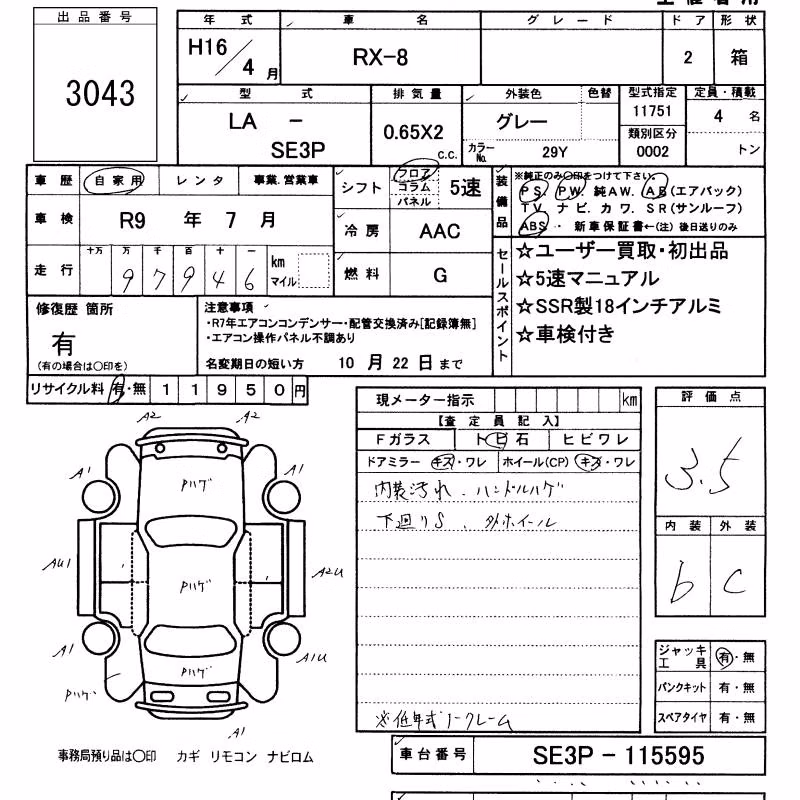 出品番号
3043
年式 車名 グレード ドア 形状
H16/4月 RX-8 2 箱
型式 排気量 外装色 色替 型式指定 定員・積載
LA - SE3P 0.65X2 c.c. グレー 11751 4 名
カラーNo. 29Y 類別区分 0002 トン
車歴 自家用 レンタ 事業.営業車
シフト フロア コラム パネル 5速
装備品 ※純正のみ〇印をつけて下さい。
PS PW 純AW. AB(エアバック)
TV ナビ. カワ. SR(サンルーフ)
ABS ・ 新車保証書←(注) 後日送りのみ
車検 R9 年 7 月
冷房 AAC
走行 十万 万 千 百 十 一
9 7 9 4 6 km マイル
燃料 G
セールスポイント
☆ユーザー買取・初出品
☆5速マニュアル
☆SSR製18インチアルミ
☆車検付き
修復歴 箇所
有
(有の場合は〇印を)
注意事項
・R7年エアコンコンデンサー・配管交換済み[記録簿無]
・エアコン操作パネル不調あり
名変期日の短い方 10 月 22 日 まで
リサイクル料 有・無 1 1 9 5 0 円
現メーター指示 km
【査定員記入】
Fガラス トビ石 ヒビワレ
ドアミラー キズ・ワレ ホイール(CP) キズ・ワレ
内装汚れ . ハンドルハゲ
下廻りS . 外ホイール
※低年式ノークレーム
評価点
3.5
内装 外装
b C
ジャッキ工具 有・無
パンクキット 有・無
スペアタイヤ 有・無
A2 A2
A1 A1
Pハゲ
AU1 Pハゲ A2U
A1 A1U
Pハゲ Pハゲ
A1
事務局預り品は〇印 カギ リモコン ナビロム
車台番号 SE3P－115595